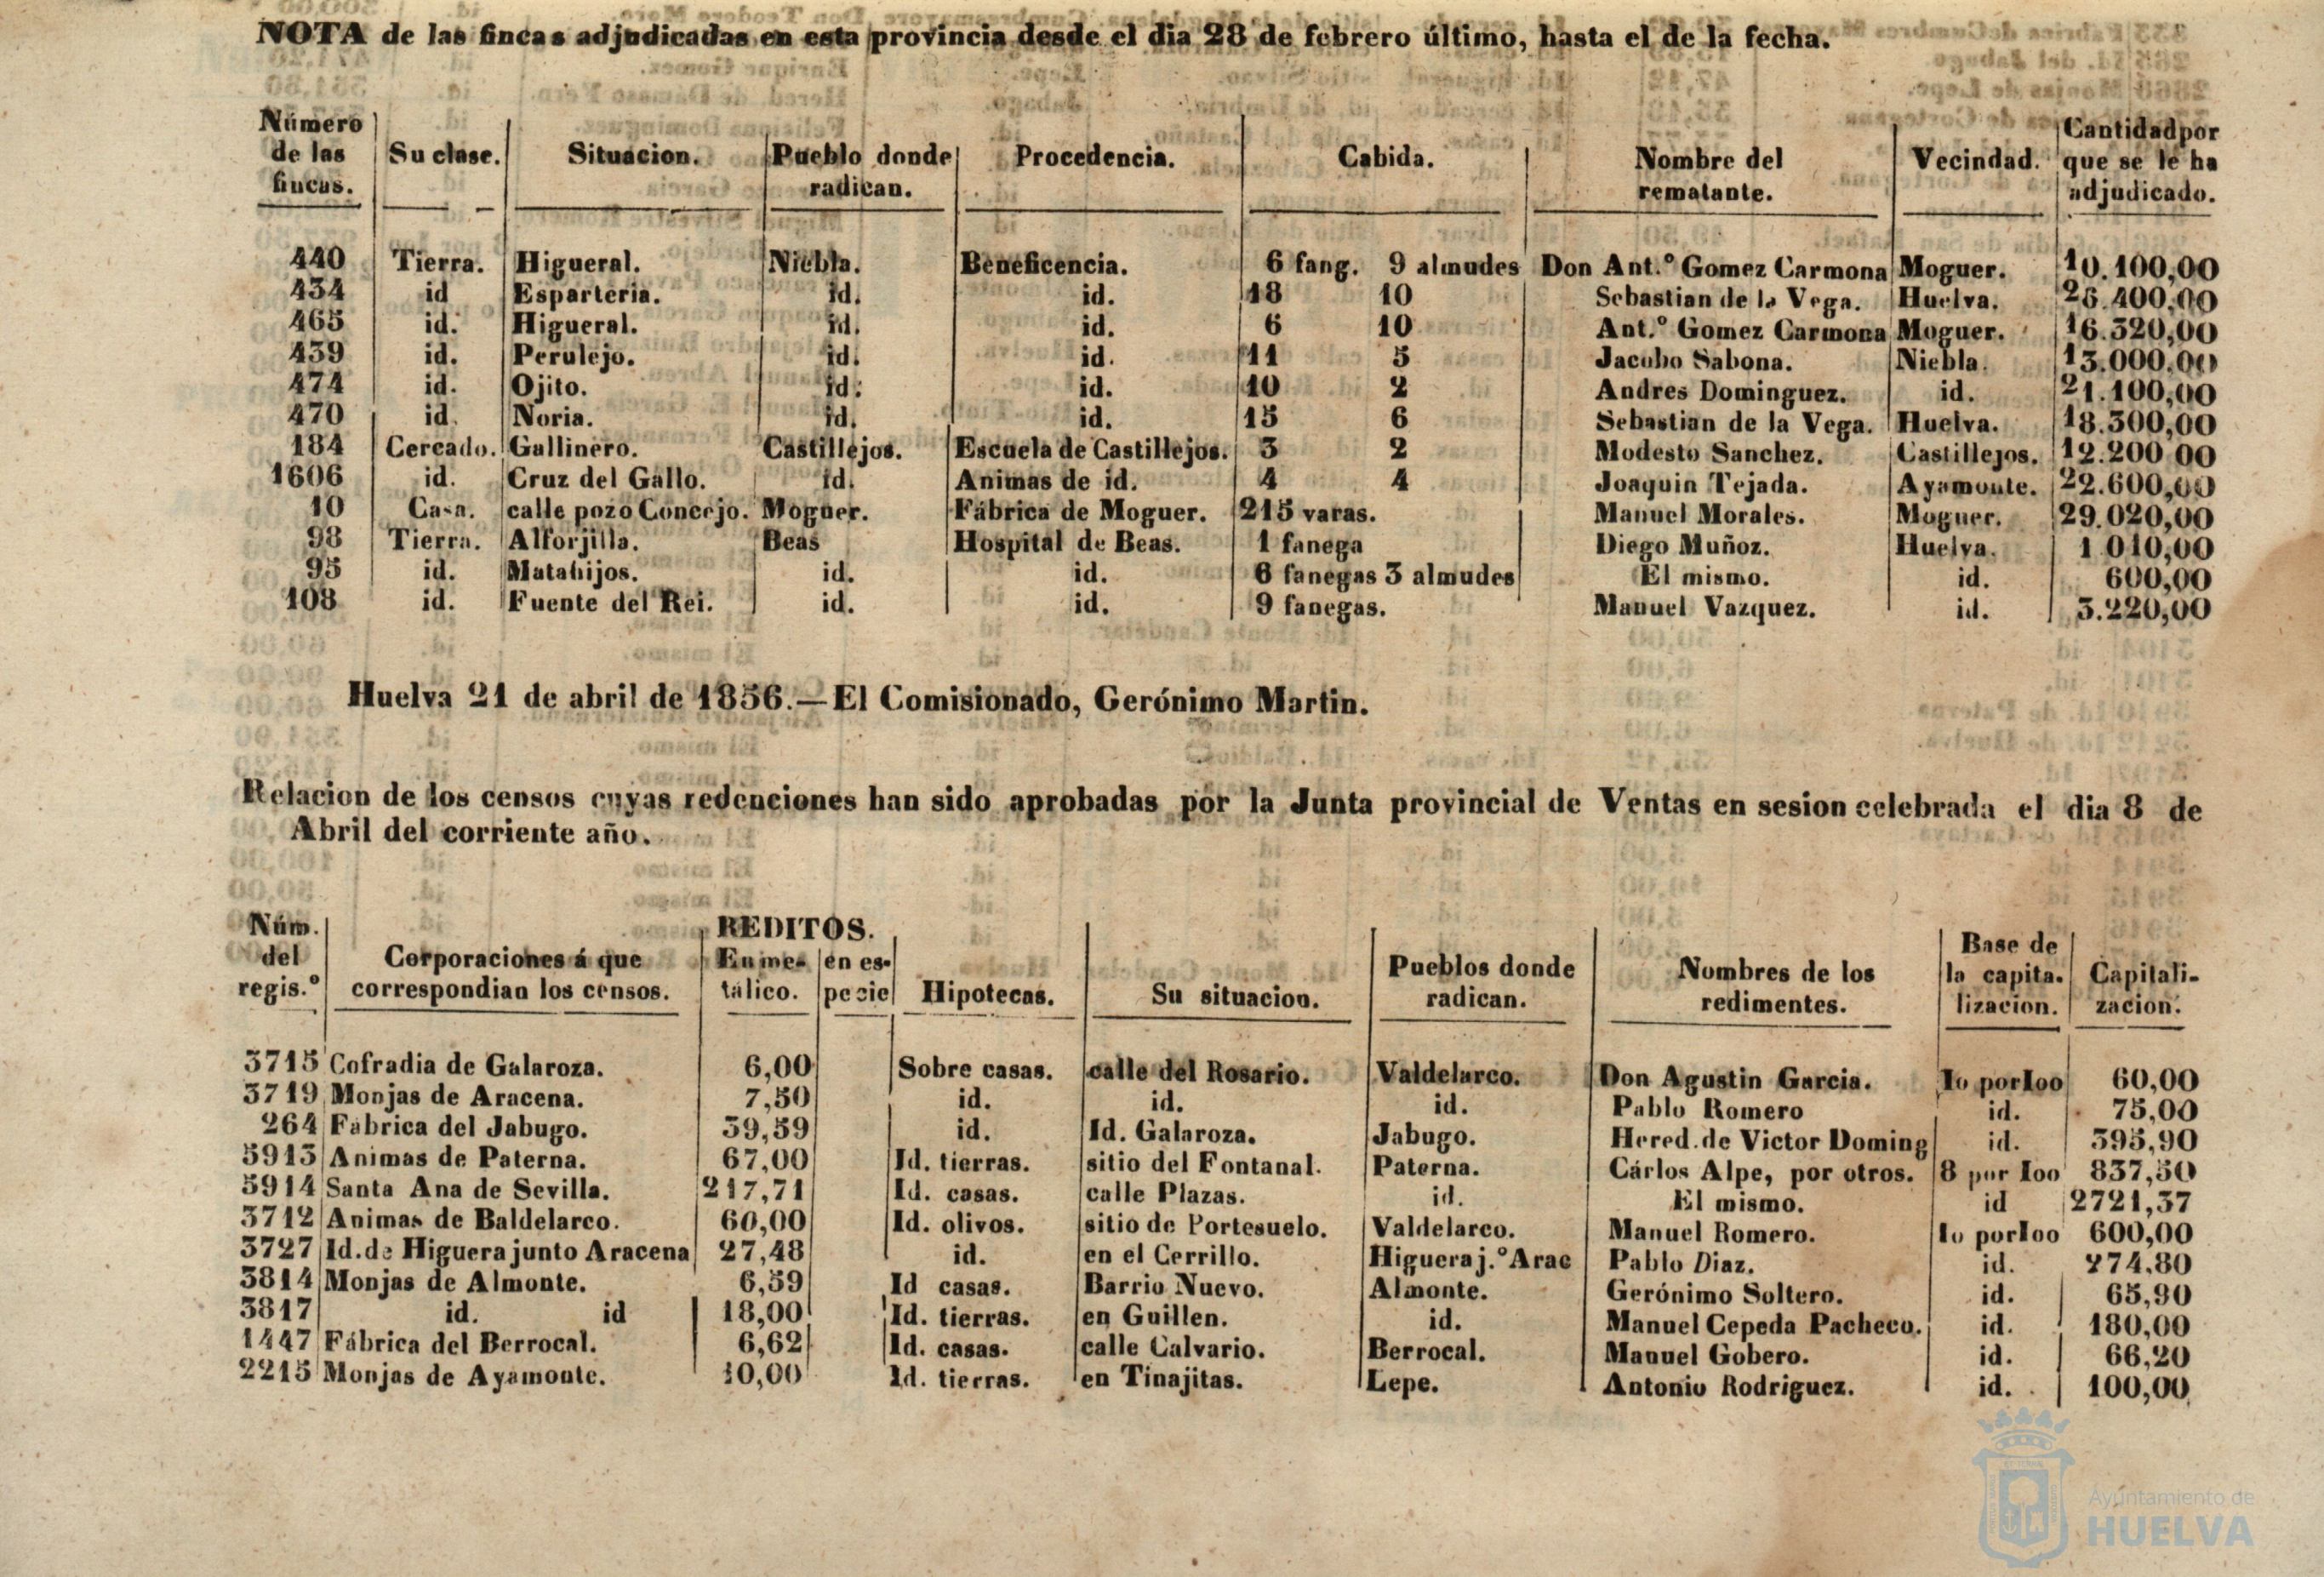 NOTA de las fincas adjudicadas en esta provincia desde el dia 28 de febrero último, hasta el de la fecha.
Número de las fincas. Su clase. Situacion. Pueblo donde radican. Procedencia. Cabida. Nombre del rematante. Vecindad. Cantidad por que se le ha adjudicado.
440 Tierra. Higueral. Niebla. Beneficencia. 6 fang. 9 almudes Don Ant.º Gomez Carmona Moguer. 10.100,00
434 id Esparteria. id. id. 18 10 Sebastian de la Vega. Huelva. 26.400,00
465 id. Higueral. id. id. 6 10 Ant.º Gomez Carmona Moguer. 16.320,00
439 id. Perulejo. id. id. 11 5 Jacobo Sabona. Niebla. 13.000,00
474 id. Ojito. id. id. 10 2 Andres Dominguez. id. 21.100,00
470 id. Noria. id. id. 15 6 Sebastian de la Vega. Huelva. 18.300,00
184 Cercado. Gallinero. Castillejos. Escuela de Castillejos. 3 2 Modesto Sanchez. Castillejos. 12.200 00
1606 id. Cruz del Gallo. id. Animas de id. 4 4 Joaquin Tejada. Ayamonte. 22.600,00
10 Casa. calle pozo Concejo. Moguer. Fábrica de Moguer. 215 varas. Manuel Morales. Moguer. 29.020,00
98 Tierra. Alforjilla. Beas Hospital de Beas. 1 fanega Diego Muñoz. Huelva. 1 010,00
95 id. Matahijos. id. id. 6 fanegas 3 almudes El mismo. id. 600,00
108 id. Fuente del Rei. id. id. 9 fanegas. Manuel Vazquez. id. 3.220,00
Huelva 21 de abril de 1856.—El Comisionado, Gerónimo Martin.
Relacion de los censos cuyas redenciones han sido aprobadas por la Junta provincial de Ventas en sesion celebrada el dia 8 de
Abril del corriente año.
REDITOS.
Núm. del regis.º Corporaciones á que correspondian los censos. En me-tálico. en es-pecie Hipotecas. Su situacion. Pueblos donde radican. Nombres de los redimentes. Base de la capita-lizacion. Capitali-zacion.
3715 Cofradia de Galaroza. 6,00 Sobre casas. calle del Rosario. Valdelarco. Don Agustin Garcia. 1o por1oo 60,00
3719 Monjas de Aracena. 7,50 id. id. id. Pablo Romero id. 75,00
264 Fabrica del Jabugo. 39,59 id. Id. Galaroza. Jabugo. Hered. de Victor Doming id. 395,90
5913 Animas de Paterna. 67,00 Id. tierras. sitio del Fontanal. Paterna. Cárlos Alpe, por otros. 8 por 1oo 837,50
5914 Santa Ana de Sevilla. 217,71 Id. casas. calle Plazas. id. El mismo. id 2721,37
3712 Animas de Baldelarco. 60,00 Id. olivos. sitio de Portesuelo. Valdelarco. Manuel Romero. 1o por1oo 600,00
3727 Id. de Higuera junto Aracena 27,48 id. en el Cerrillo. Higuera j.º Arac Pablo Diaz. id. 274,80
3814 Monjas de Almonte. 6,59 Id casas. Barrio Nuevo. Almonte. Gerónimo Soltero. id. 65,90
3817 id. id 18,00 Id. tierras. en Guillen. id. Manuel Cepeda Pacheco. id. 180,00
1447 Fábrica del Berrocal. 6,62 Id. casas. calle Calvario. Berrocal. Manuel Gobero. id. 66,20
2215 Monjas de Ayamonte. 10,00 Id. tierras. en Tinajitas. Lepe. Antonio Rodriguez. id. 100,00
Ayuntamiento de
HUELVA